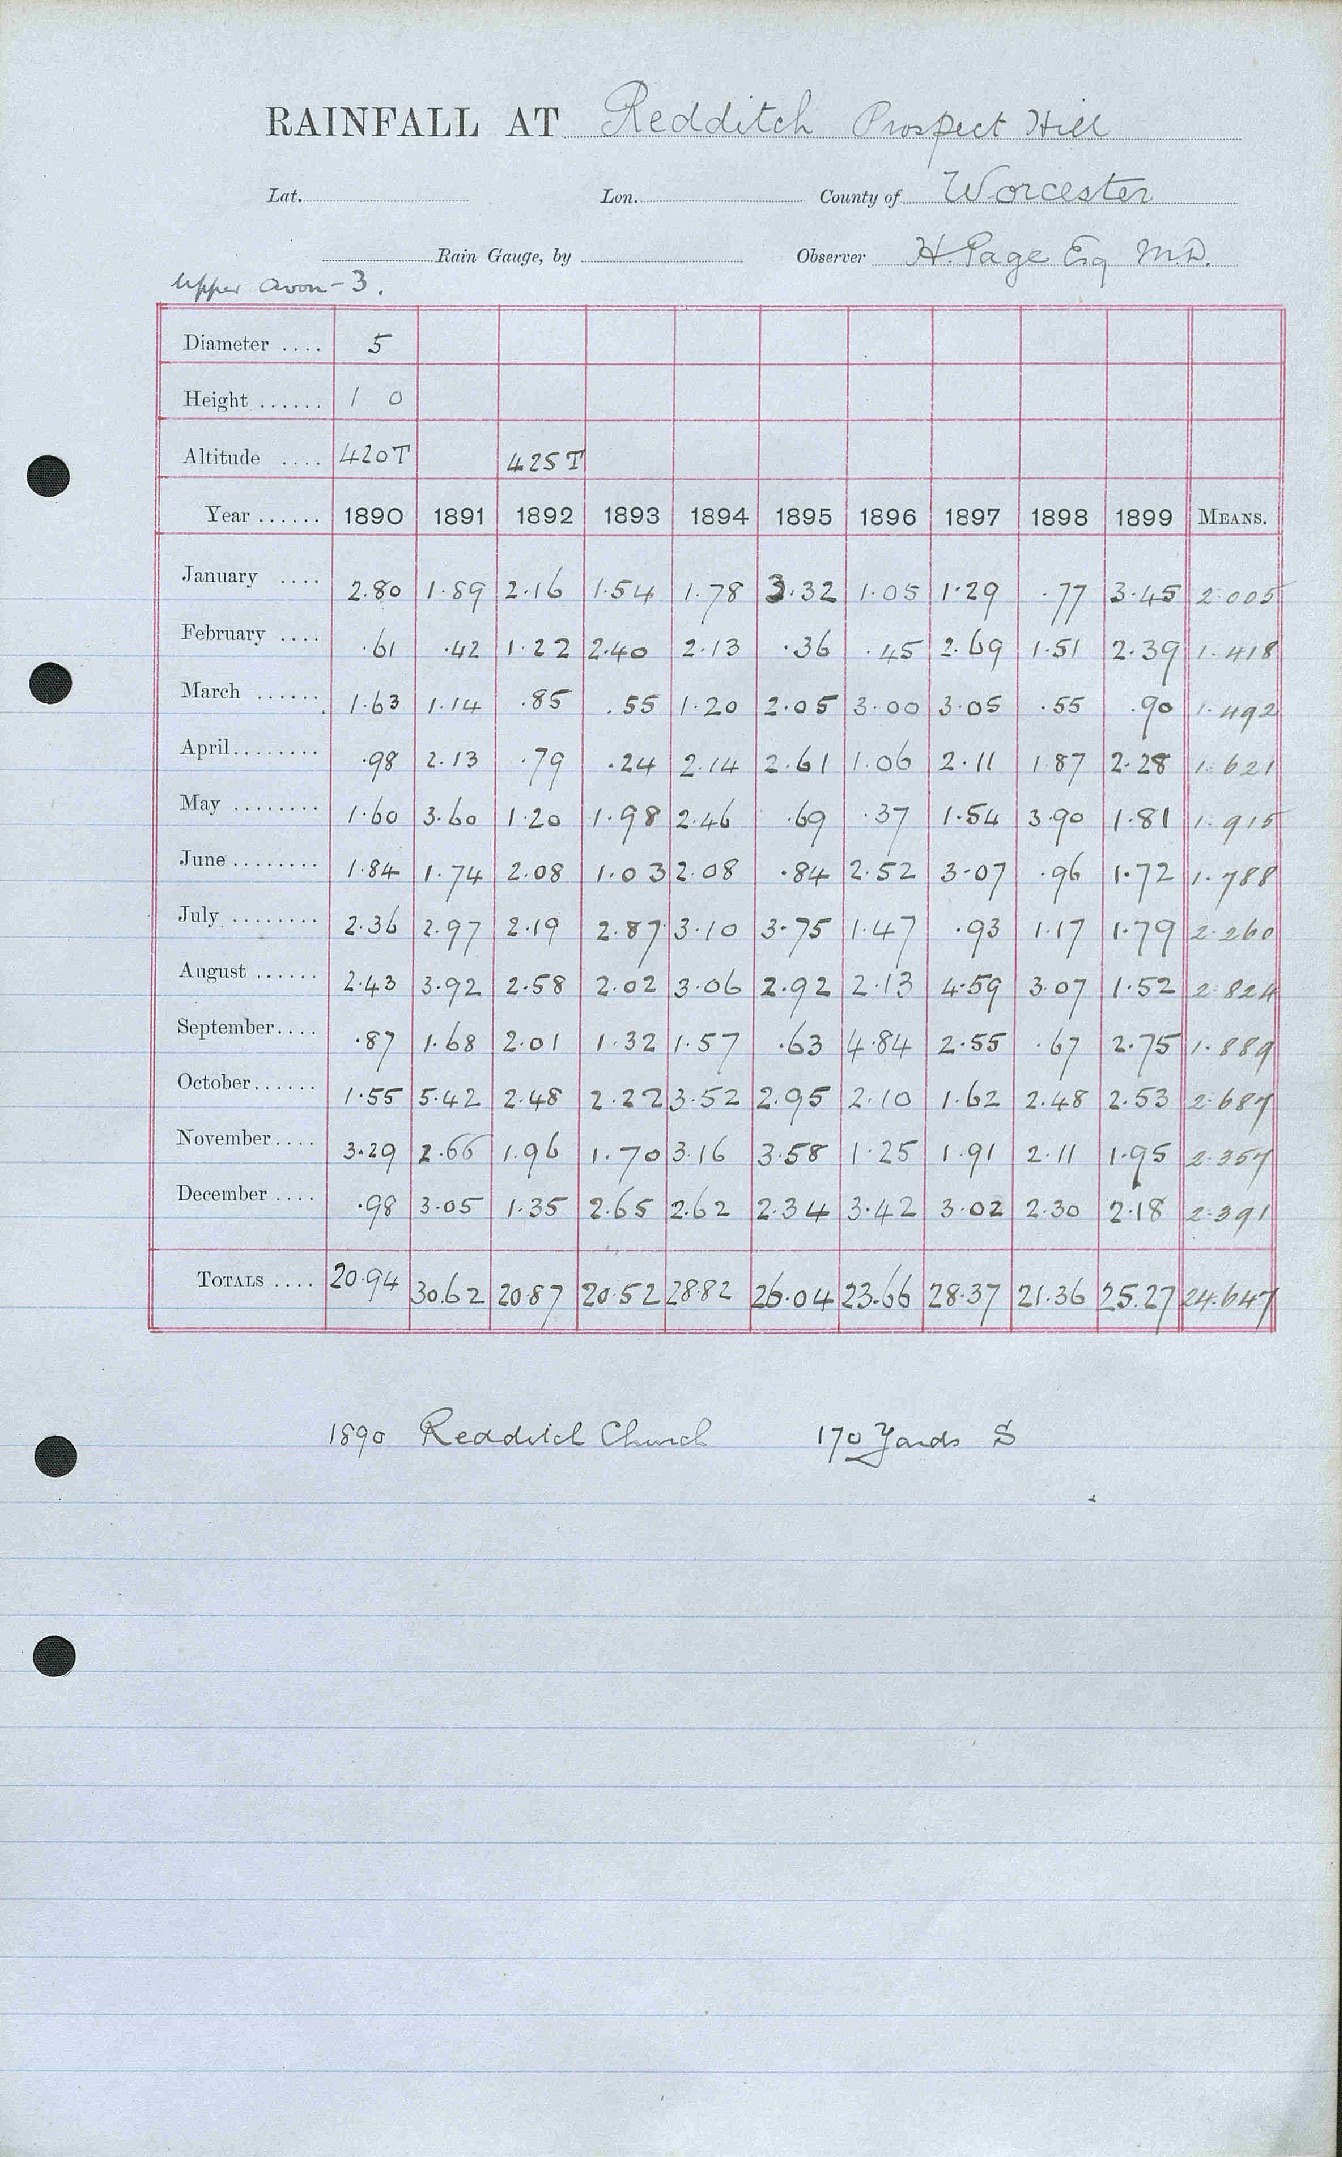 RAINFALL AT Redditch Prospect Hill
Lat. Lon. County of Worcester
Rain Gauge, by Observer H. Page Esq M.D.
Upper Avon - 3.
Diameter .... 5
Height ...... 1 0
Altitude .... 420T 425T
Year ...... 1890 1891 1892 1893 1894 1895 1896 1897 1898 1899 MEANS.
January .... 2.80 1.89 2.16 1.54 1.78 3.32 1.05 1.29 .77 3.45 2.005
February .... .61 .42 1.22 2.40 2.13 .36 .45 2.69 1.51 2.39 1.418
March ...... 1.63 1.14 .85 .55 1.20 2.05 3.00 3.05 .55 .90 1.492
April ........ .98 2.13 .79 .24 2.14 2.61 1.06 2.11 1.87 2.28 1.621
May ........ 1.60 3.60 1.20 1.98 2.46 .69 .37 1.54 3.90 1.81 1.915
June ........ 1.84 1.74 2.08 1.03 2.08 .84 2.52 3.07 .96 1.72 1.788
July ........ 2.36 2.97 2.19 2.87 3.10 3.75 1.47 .93 1.17 1.79 2.260
August ...... 2.43 3.92 2.58 2.02 3.06 2.92 2.13 4.59 3.07 1.52 2.824
September .... .87 1.68 2.01 1.32 1.57 .63 4.84 2.55 .67 2.75 1.889
October ...... 1.55 5.42 2.48 2.22 3.52 2.95 2.10 1.62 2.48 2.53 2.687
November .... 3.29 2.66 1.96 1.70 3.16 3.58 1.25 1.91 2.11 1.95 2.357
December .... .98 3.05 1.35 2.65 2.62 2.34 3.42 3.02 2.30 2.18 2.391
TOTALS .... 20.94 30.62 20.87 20.52 28.82 26.04 23.66 28.37 21.36 25.27 24.647
1890 Redditch Church 170 Yards S